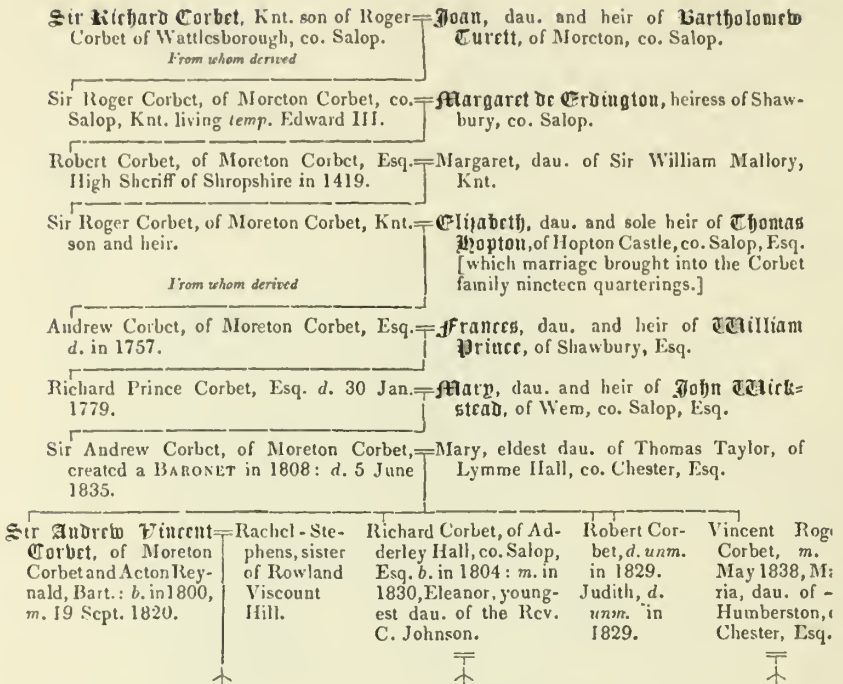 Sir Richard Corbet, Knt. son of Roger
Corbet of Wattlesborough, co. Salop.
From whom derived
Joan, dau. and heir of Bartholomew
Turett, of Moreton, co. Salop.
Sir Roger Corbet, of Moreton Corbet, co.
Salop, Knt. living temp. Edward III.
Margaret de Erdington, heiress of Shaw-
bury, co. Salop.
Robert Corbet, of Moreton Corbet, Esq.
High Sheriff of Shropshire in 1419.
Margaret, dau. of Sir William Mallory,
Knt.
Sir Roger Corbet, of Moreton Corbet, Knt.
son and heir.
From whom derived
Elizabeth, dau. and sole heir of Thomas
Hopton, of Hopton Castle, co. Salop, Esq.
[which marriage brought into the Corbet
family nineteen quarterings.]
Andrew Corbet, of Moreton Corbet, Esq.
d. in 1757.
Frances, dau. and heir of William
Prince, of Shawbury, Esq.
Richard Prince Corbet, Esq. d. 30 Jan.
1779.
Mary, dau. and heir of John Wick-
stead, of Wem, co. Salop, Esq.
Sir Andrew Corbet, of Moreton Corbet,
created a BARONET in 1808: d. 5 June
1835.
Mary, eldest dau. of Thomas Taylor, of
Lymme Hall, co. Chester, Esq.
Sir Andrew Vincent
Corbet, of Moreton
Corbet and Acton Rey-
nald, Bart.: b. in 1800,
m. 19 Sept. 1820.
Rachel-Ste-
phens, sister
of Rowland
Viscount
Hill.
Richard Corbet, of Ad-
derley Hall, co. Salop,
Esq. b. in 1804: m. in
1830, Eleanor, young-
est dau. of the Rev.
C. Johnson.
Robert Cor-
bet, d. unm.
in 1829.
Judith, d.
unm. in
1829.
Vincent Rog
Corbet, m.
May 1838, Ma
ria, dau. of -
Humberston,
Chester, Esq.